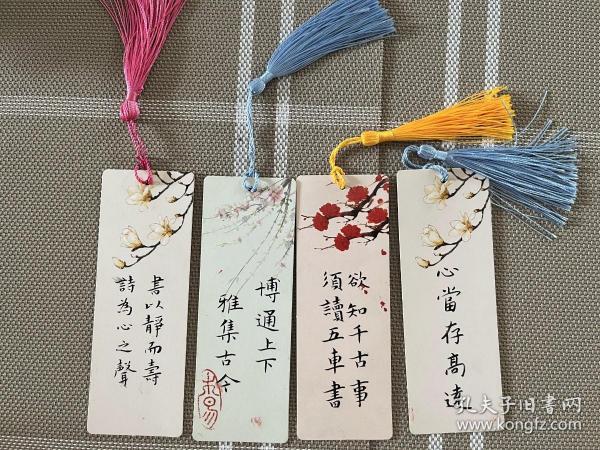 書以靜而壽
詩為心之聲
博通上下
雅集古今
欲知千古事
須讀五車書
心當存高遠
孔夫子旧书网
www.kongfz.com